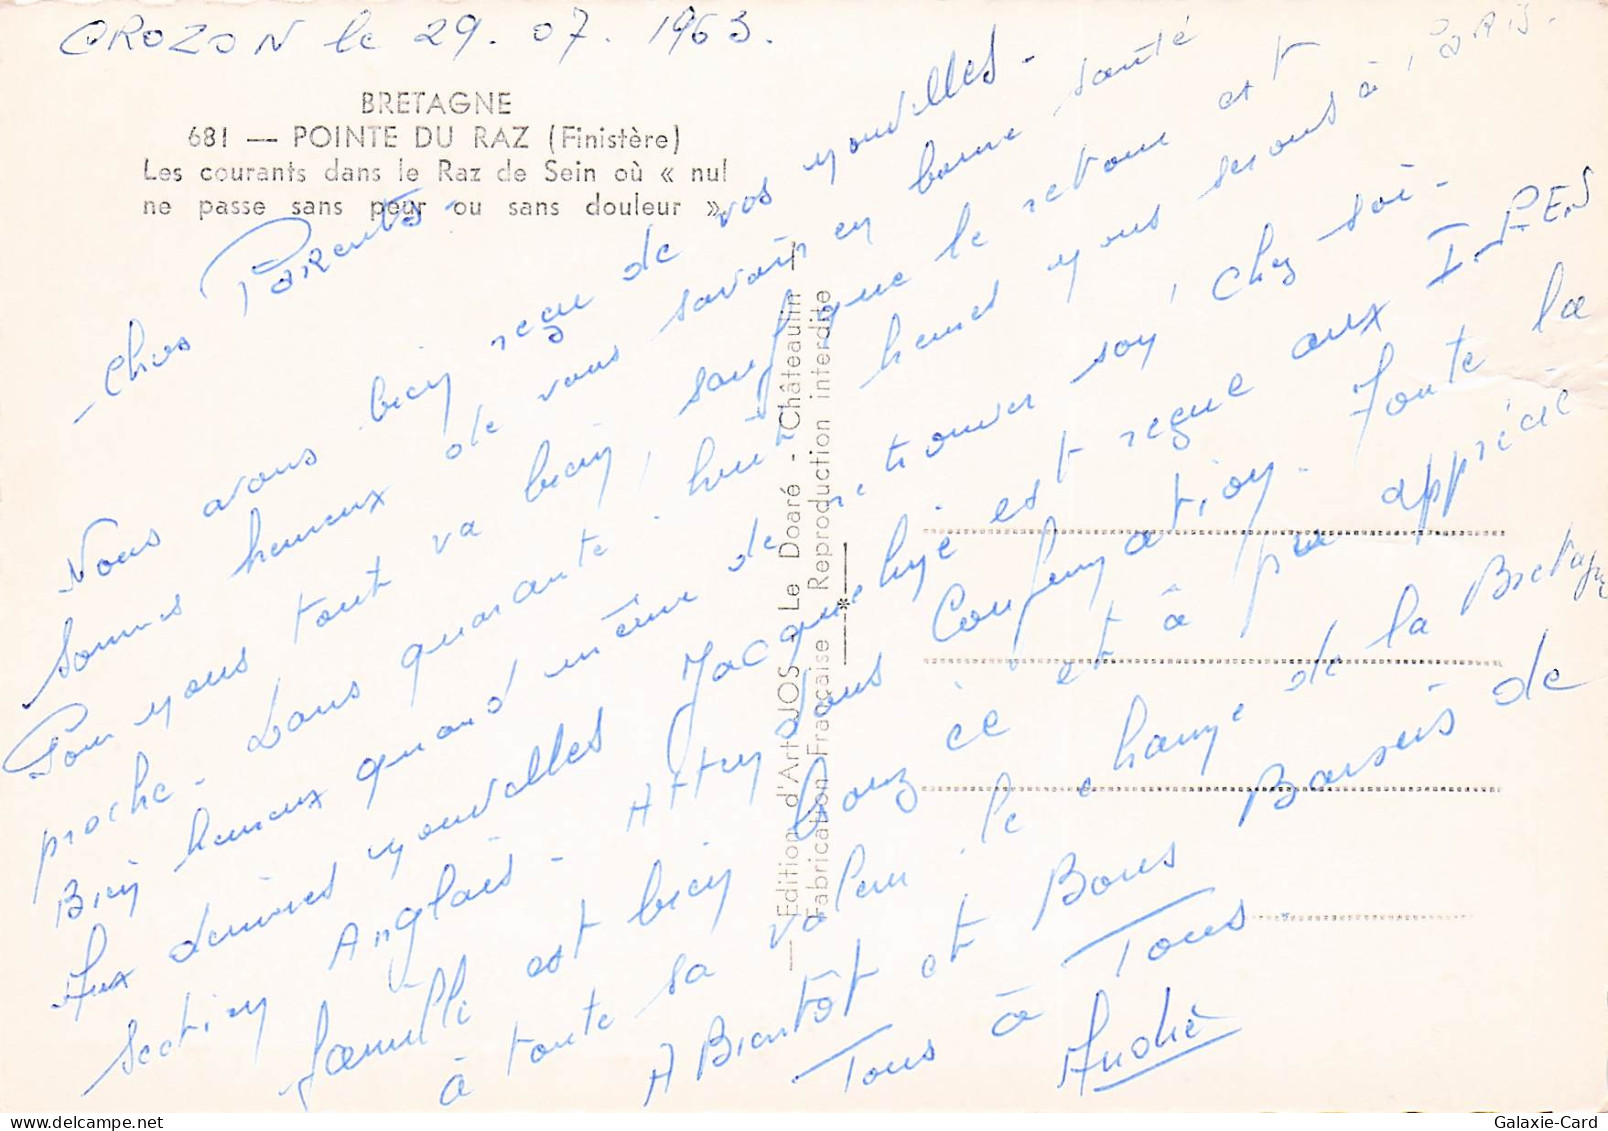 CROZON le 29.07.1963.
BRETAGNE
681 — POINTE DU RAZ (Finistère)
Les courants dans le Raz de Sein où « nul
ne passe sans peur ou sans douleur »
Chers Parents -
Nous avons bien reçu de vos nouvelles -
Sommes heureux de vous savoir en bonne santé
Pour nous tout va bien, sauf que le retour est
proche - Dans quarante huit heures nous serons à PARIS.
Bien heureux quand même de retrouver son chez soi -
Aux dernières nouvelles Jacqueline est reçue aux I.P.E.S
section Anglais - Attendons Confirmation. Toute la
famille est bien et a apprécié
à toute sa valeur le change de la Bretagne
A Bientôt et Bons Baisers de
Tous à Tous
André
— Edition d'Art JOS Le Doaré - Châteaulin —
Fabrication Française Reproduction interdite
Galaxie-Card